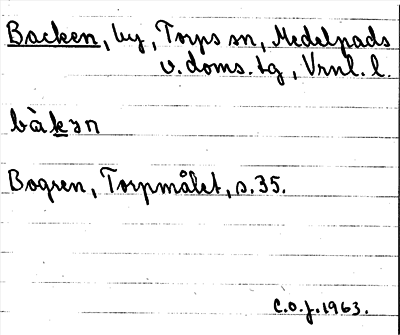 Backen, by, Torps sn, Medelpads
v. doms. tg, Vrnl. l.
bàkən
Bogren, Torpmålet, s. 35.
C.O.J. 1963.